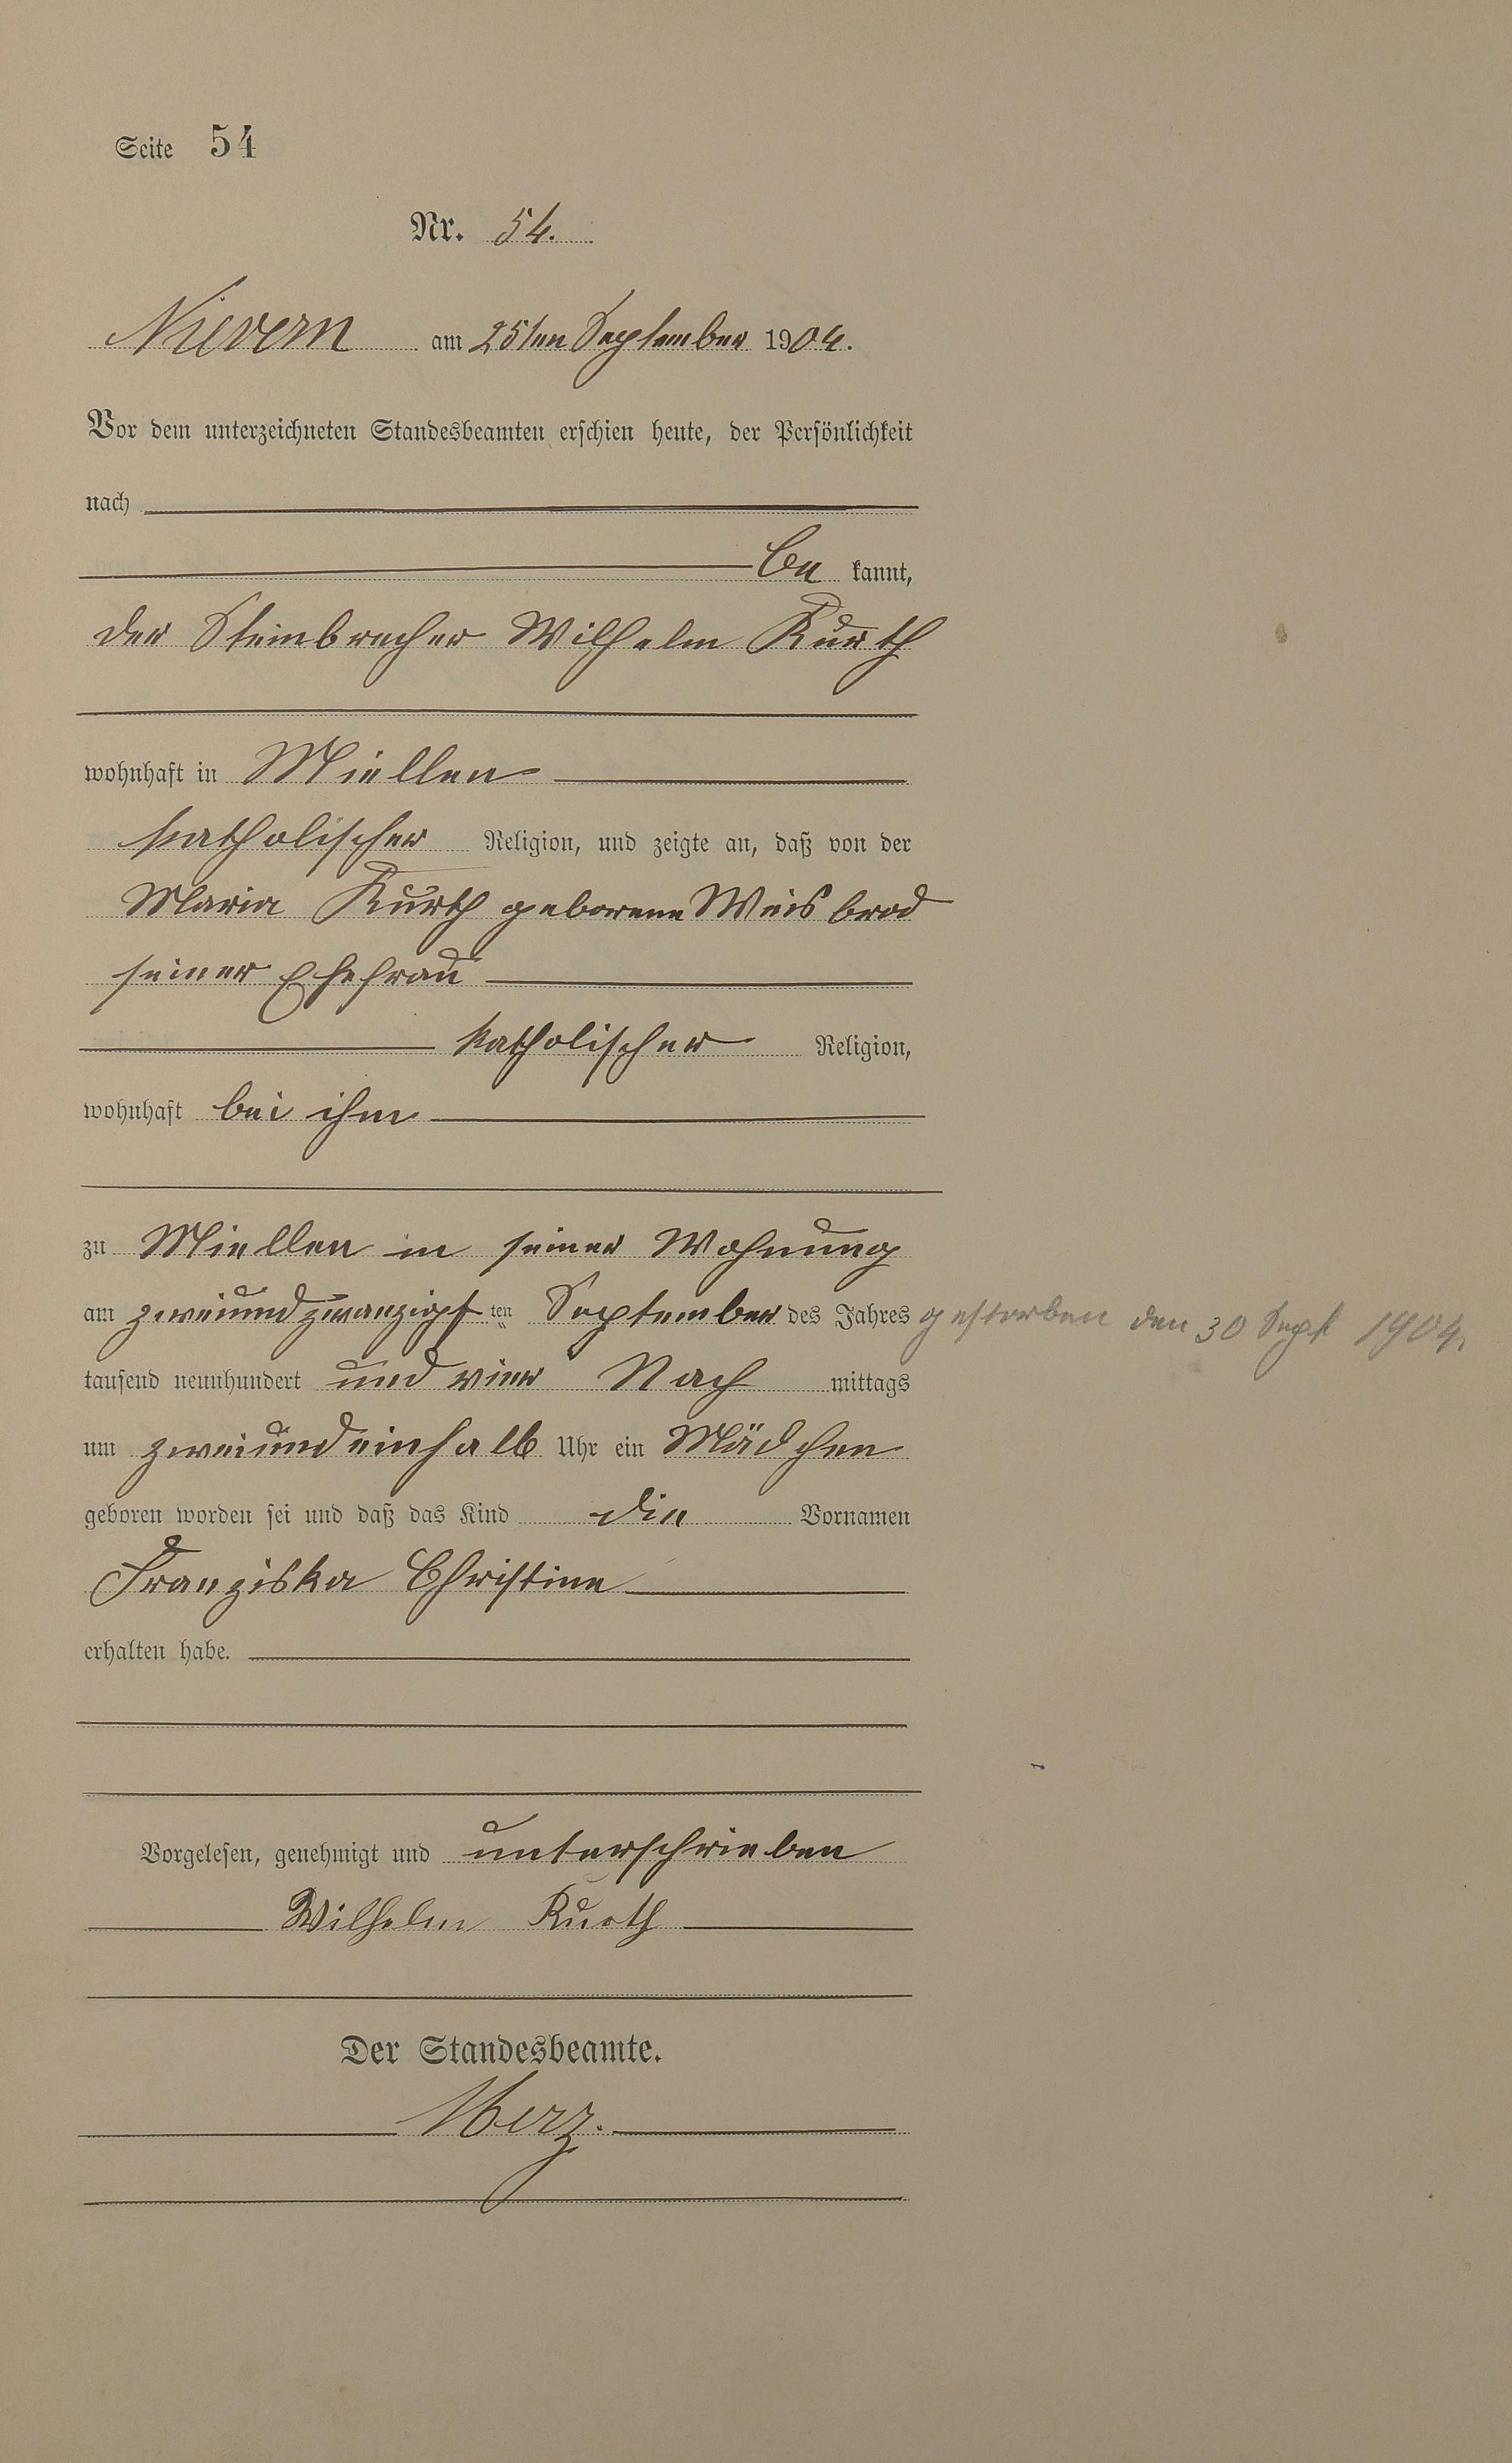 Seite 54
Nr. 54.
Nievern am 25ten September 1904.
Vor dem unterzeichneten Standesbeamten erschien heute, der Persönlichkeit
nach
be kannt,
der Steinbrecher Wilhelm Kurth
wohnhaft in Miellen
katholischer Religion, und zeigte an, daß von der
Maria Kurth geborene Weisbrod
seiner Ehefrau
katholischer Religion,
wohnhaft bei ihm
zu Miellen in seiner Wohnung
am zweiundzwanzigsten September des Jahres gestorben den 30 Sept 1904.
tausend neunhundert und vier Nach mittags
um zweiundeinhalb Uhr ein Mädchen
geboren worden sei und daß das Kind die Vornamen
Franziska Christine
erhalten habe.
Vorgelesen, genehmigt und unterschrieben
Wilhelm Kurth
Der Standesbeamte.
Merz.